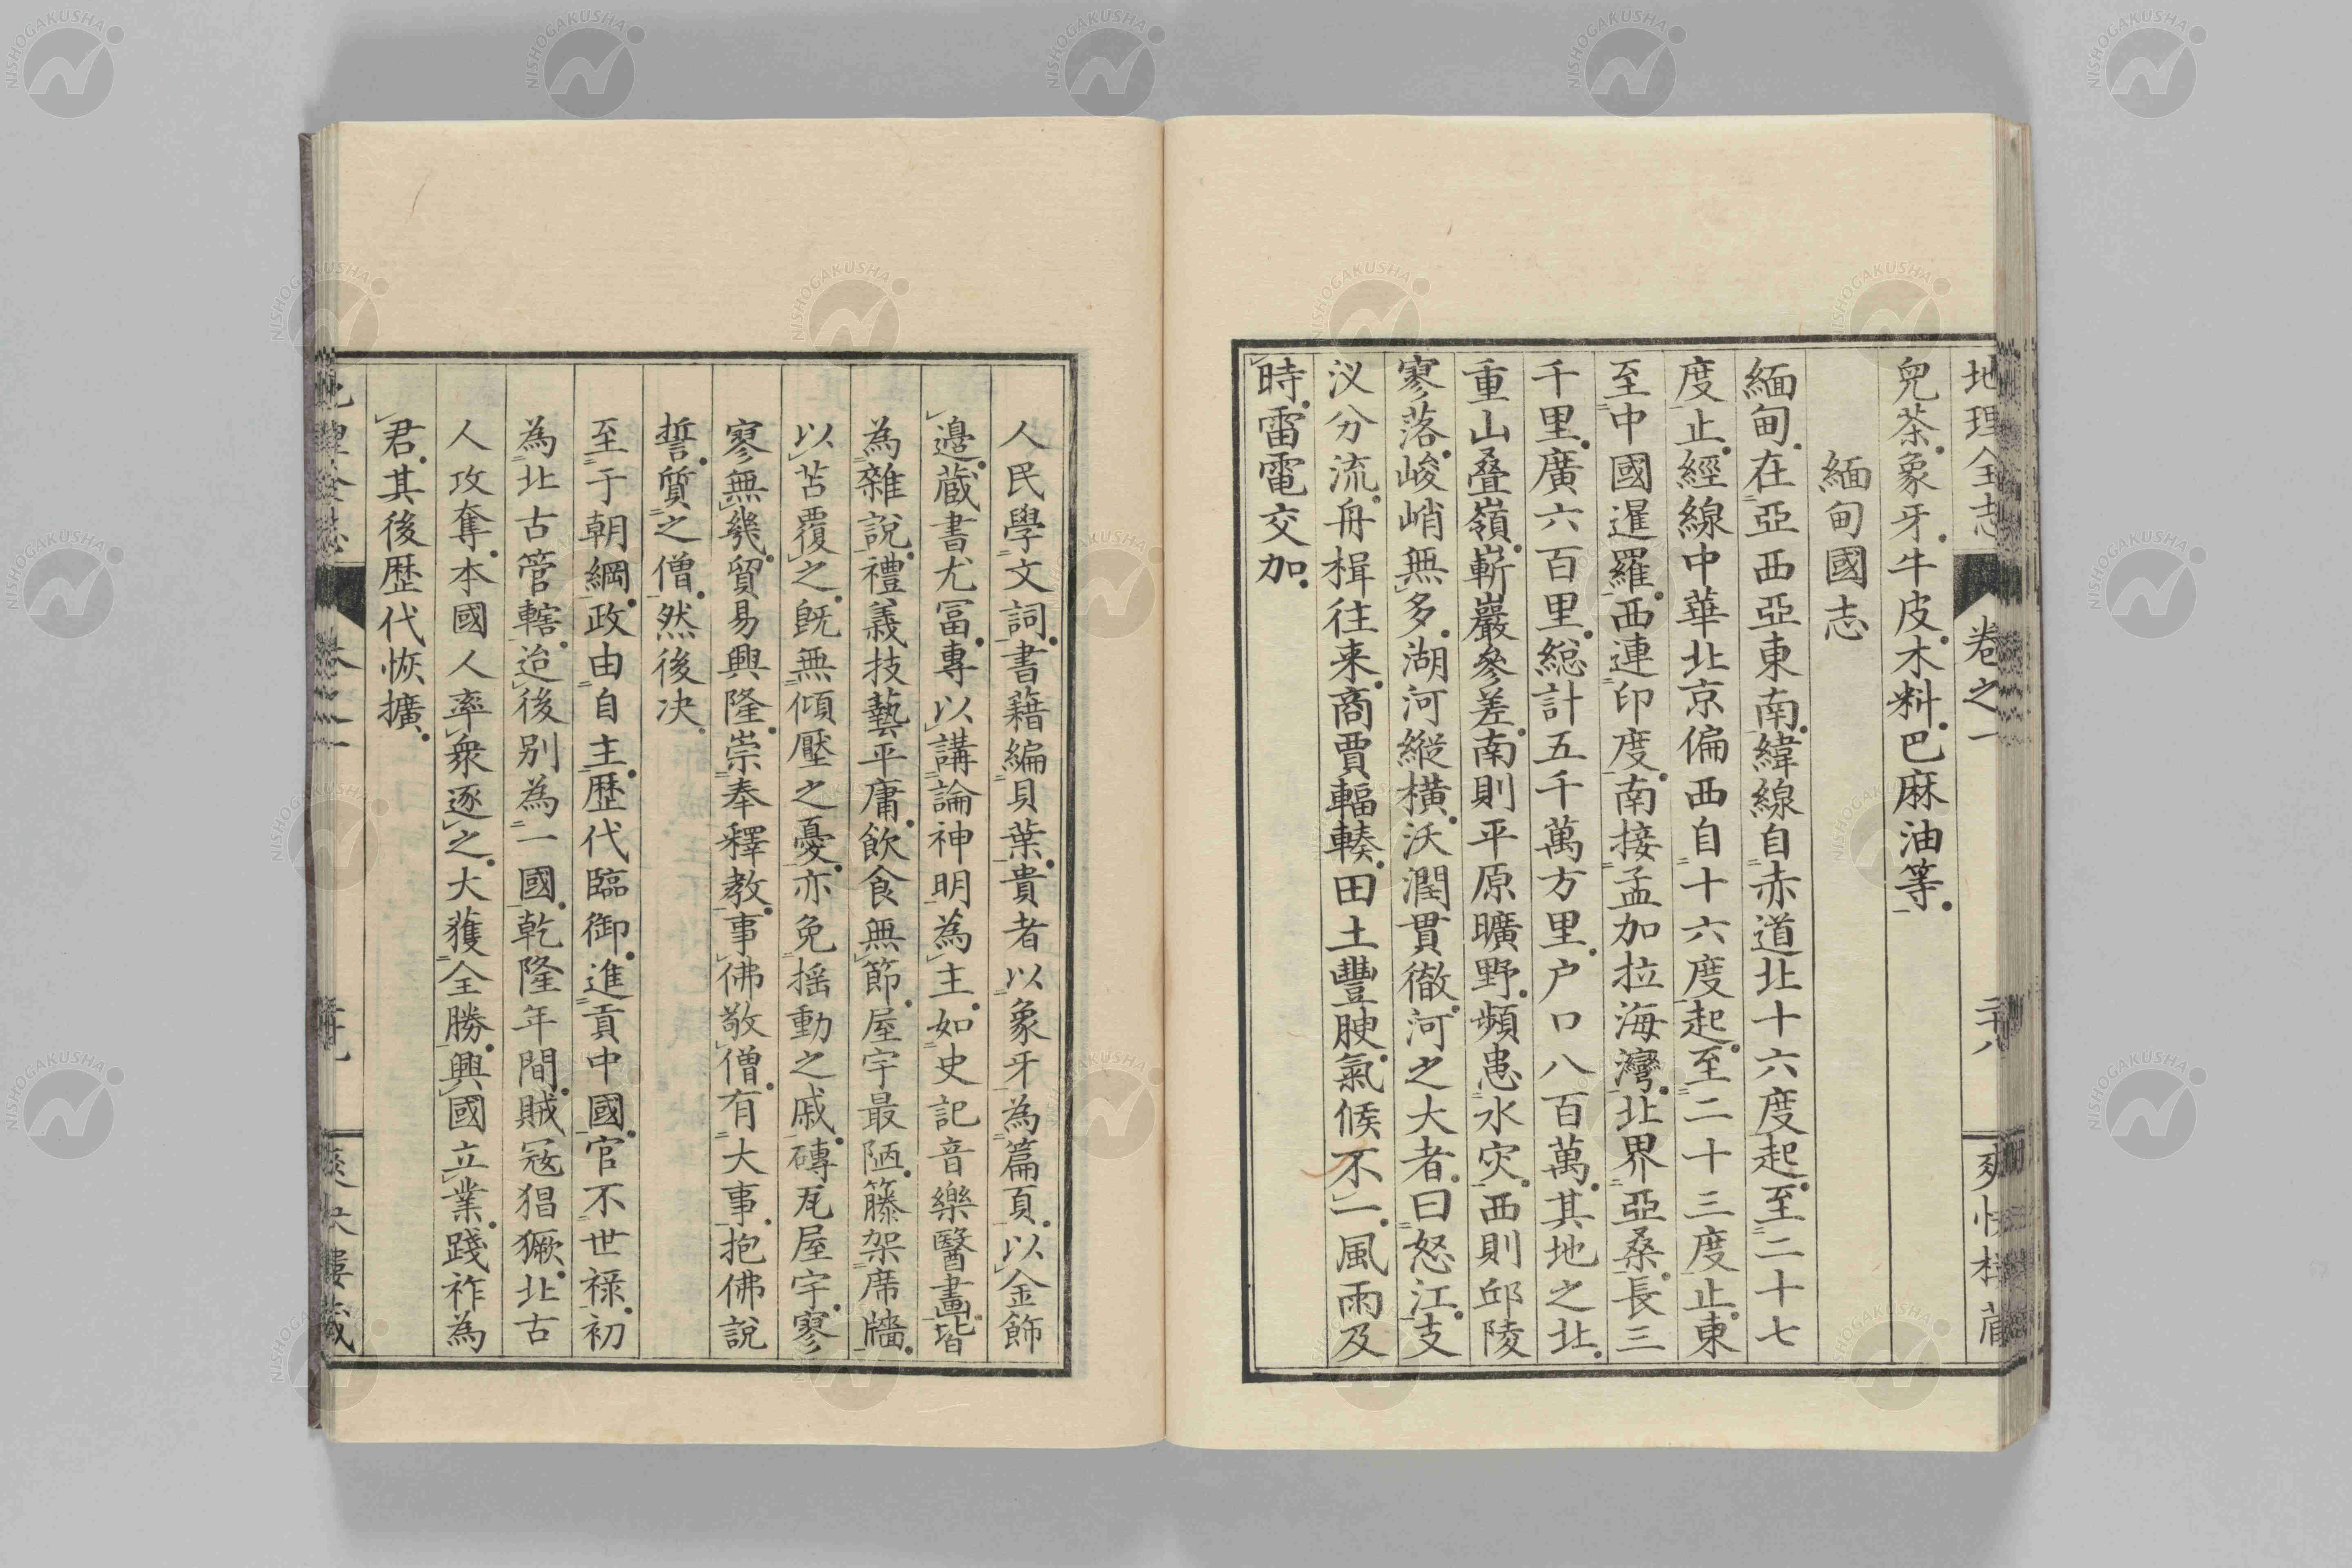 地理全志 卷之一 二十八 爽快樓藏
兒茶.象牙.牛皮.木料.巴麻油等.
緬甸國志
緬甸.在亞西亞東南.緯線自赤道北十六度起.至二十七
度止.經線中華北京偏西自十六度起.至二十三度止.東
至中國暹羅.西連印度.南接孟加拉海灣.北界亞桑.長三
千里.廣六百里.総計五千萬方里.户口八百萬.其地之北.
重山叠嶺.嶄巖參差.南則平原曠野.頻患水灾.西則邱陵
寥落.峻峭無多.湖河縱橫.沃潤貫徹.河之大者.曰怒江.支
汊分流.舟楫往来.商賈輻輳.田土豐腴.氣候不一.風雨及
時.雷電交加.
人民學文詞.書籍編貝葉.貴者以象牙為篇頁.以金飾
邊.蔵書尤冨.專以講論神明為主.如史記音樂醫畫.皆
為雜說.禮義技藝平庸.飲食無節.屋宇最陋.籐架席牆.
以苫覆之.旣無傾壓之憂.亦免揺動之戚.磚瓦屋宇.寥
寥無幾.貿易興隆.崇奉釋教.事佛敬僧.有大事.抱佛說
誓.質之僧.然後决.
至于朝綱.政由自主.歷代臨御.進貢中國.官不世禄.初
為北古管轄.迨後别為一國.乾隆年間.賊冦猖獗.北古
人攻奪.本國人率衆逐之.大獲全勝.興國立業.踐祚為
君.其後歴代恢擴.
NISHOGAKUSHA